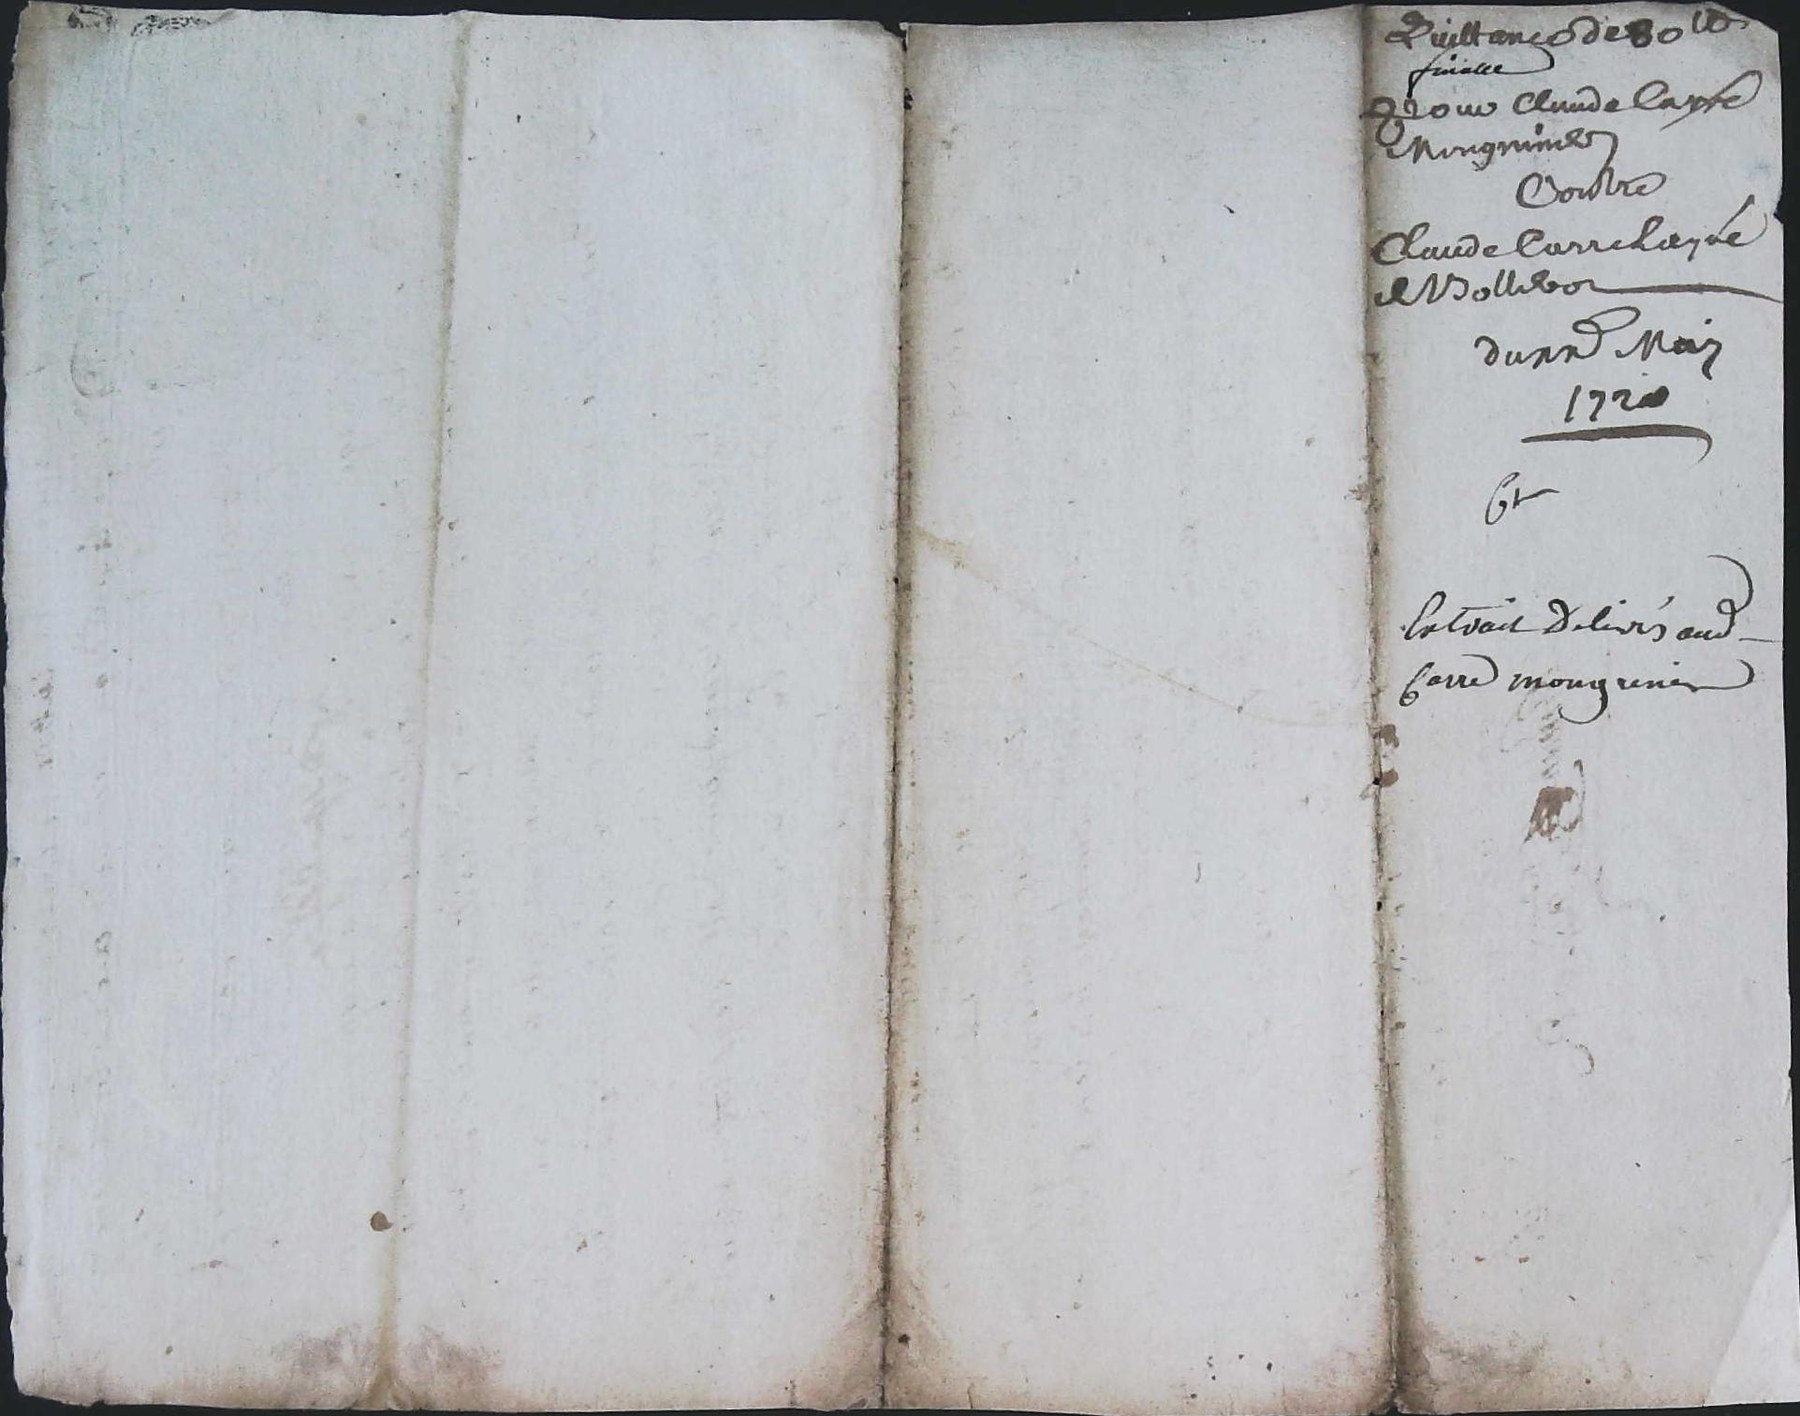 Quittance de 80 ltt
finalle
pour Claude Carre
Mongrenier
Contre
Claude Carre layné
du May
172
Extrait Delivré aud
Carre mongrenier